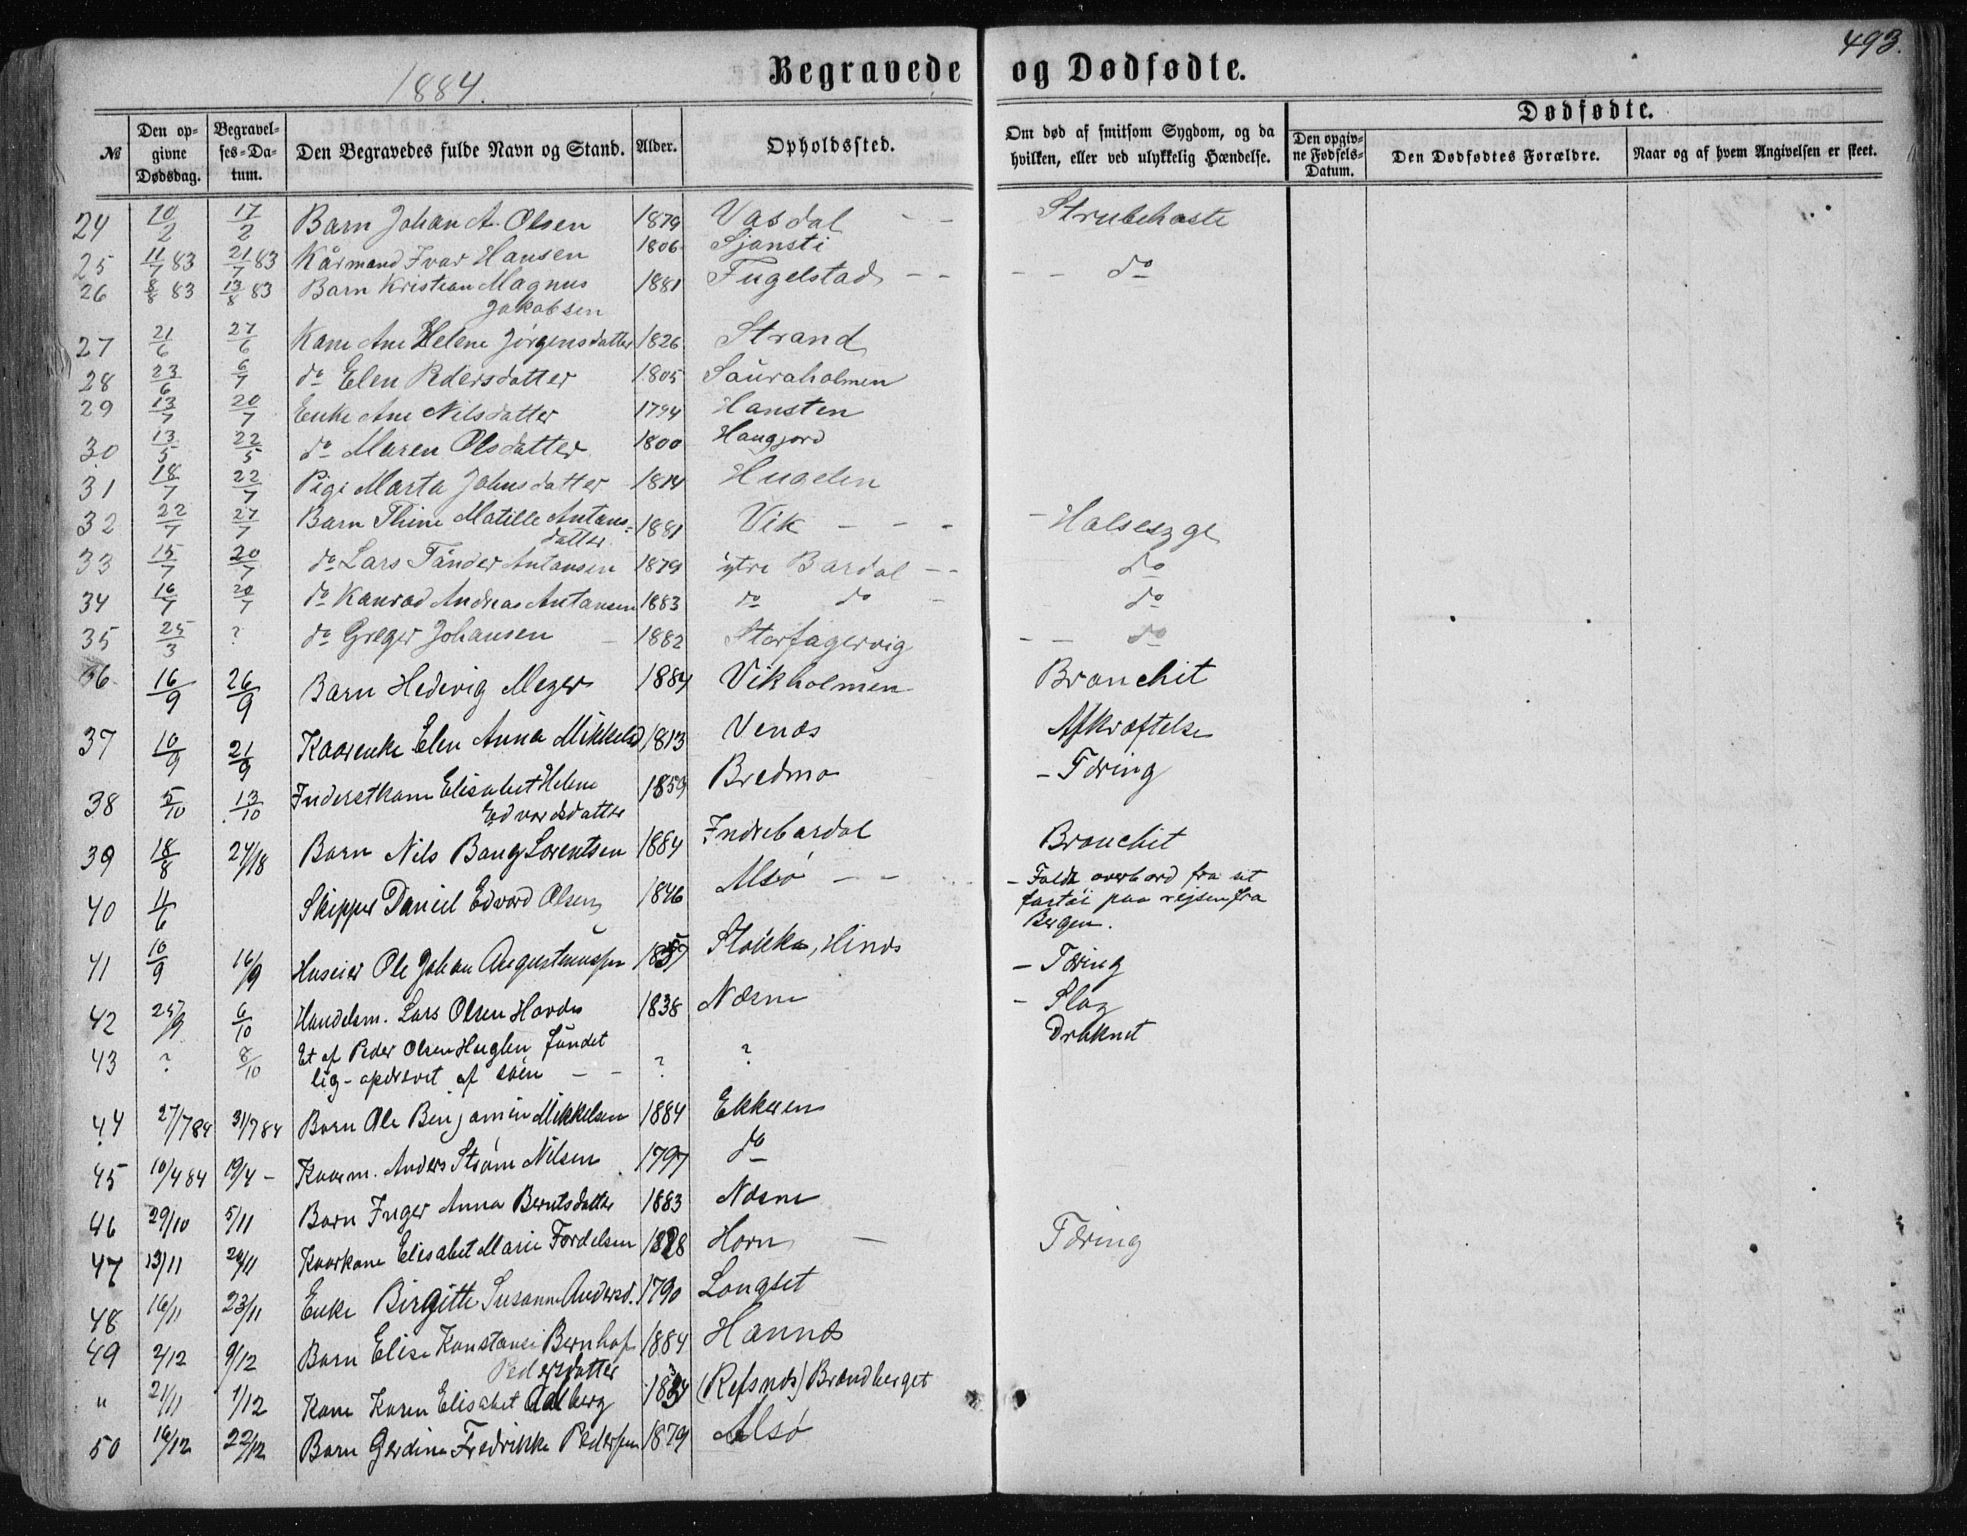 493.
1884.
Begravede og Dødfødte.
Dødfødte.
№
Den opgivne Dødsdag.
Begravelses-Datum.
Den Begravedes fulde Navn og Stand.
Alder.
Opholdssted.
Om død af smitsom Sygdom, og da hvilken, eller ved ulykkelig Hændelse.
Den opgivne Fødsels-Datum.
Den Dødfødtes Forældre.
Naar og af hvem Angivelsen er skeet.
24 10/2 17/2 Barn Johan A. Olsen 1879 Vasdal - - Strubehoste
25 11/7 83 21/7 83 Kårmand Ivar Hansen 1806 Sjønsti
26 8/8 83 13/8 83 Barn Kristian Magnus 1881 Fugelstad - - - - do
Jakobsen
27 21/6 27/6 Kone Ane Helene Jørgensdatter 1826 Strand
28 23/6 6/7 do Elen Pedersdatter 1805 Sauraholmen
29 13/7 20/7 Enke Ane Nilsdatter 1794 Hansten
30 13/5 22/5 do Maren Olsdatter 1800 Haugjord
31 18/7 22/7 Pige Marta Johnsdatter 1814 Hugelen
32 22/7 27/7 Barn Thine Matille Antons- 1881 Vik - - - - Halsesyge
datter
33 15/7 20/7 do Lars Tånder Antonsen 1879 ytre Bardal - - do
34 16/7 20/7 do Konrad Andreas Antonsen 1883 do do - do
35 25/3 ? do Greger Johansen - 1882 Storfagervig - - do
36 16/9 26/9 Barn Hedevig Meyer 1884 Vikholmen Bronchit
37 10/9 21/9 Kaarenke Elen Anna Mikkelsd 1813 Venæs Afkræftelse
38 5/10 13/10 Inderstkone Elisabet Helene 1859 Bredmo - Tæring
Edvardsdatter
39 18/8 24/8 Barn Nils Bang Lorentsen 1884 Indrebardal Bronchit
40 11/6 Skipper Daniel Edvard Olsen 1846 Alsø - - - Faldt overbord fra sit
fartøi paa rejsen fra
Bergen.
41 10/9 16/9 Huseier Ole Johan Augustinussen 1857 Stokka, Hinæs - Tæring
42 25/9 6/10 Handelsm. Lars Olsen Hovde 1838 Næsne - Slag
43 ? 8/10 Et af Peder Olsen Huglen fundet ? ? Druknet
lig - opdrevet af søen - -
44 27/7 84 31/7 84 Barn Ole Benjamin Mikkelsen 1884 Ekkeren
45 10/4 84 19/4 - Kaarm. Anders Strøm Nilsen 1797 do
46 29/10 5/11 Barn Inger Anna Berntsdatter 1883 Næsne
47 13/11 20/11 Kaarkone Elisabet Marie Fordelsen 1828 Horn - Tæring
48 16/11 23/11 Enke Birgitte Susanne Andersd. 1790 Longset
49 2/12 9/12 Barn Elise Konstanse Bernhof 1884 Hannæs
Pedersdatter
" 21/11 1/12 Kone Karen Elisabet Aalberg 1834 (Refsnæs) Brændberget
50 16/12 22/12 Barn Gerdine Fredrikke Pedersen 1879 Alsø